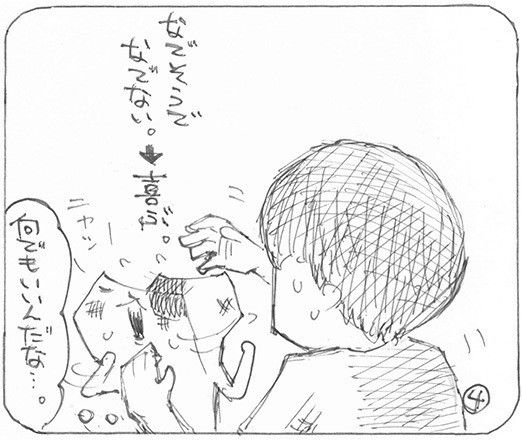 なでそうで
なでない。
➡喜ぶ。
ニヤッ
何でもいいんだな…。
4